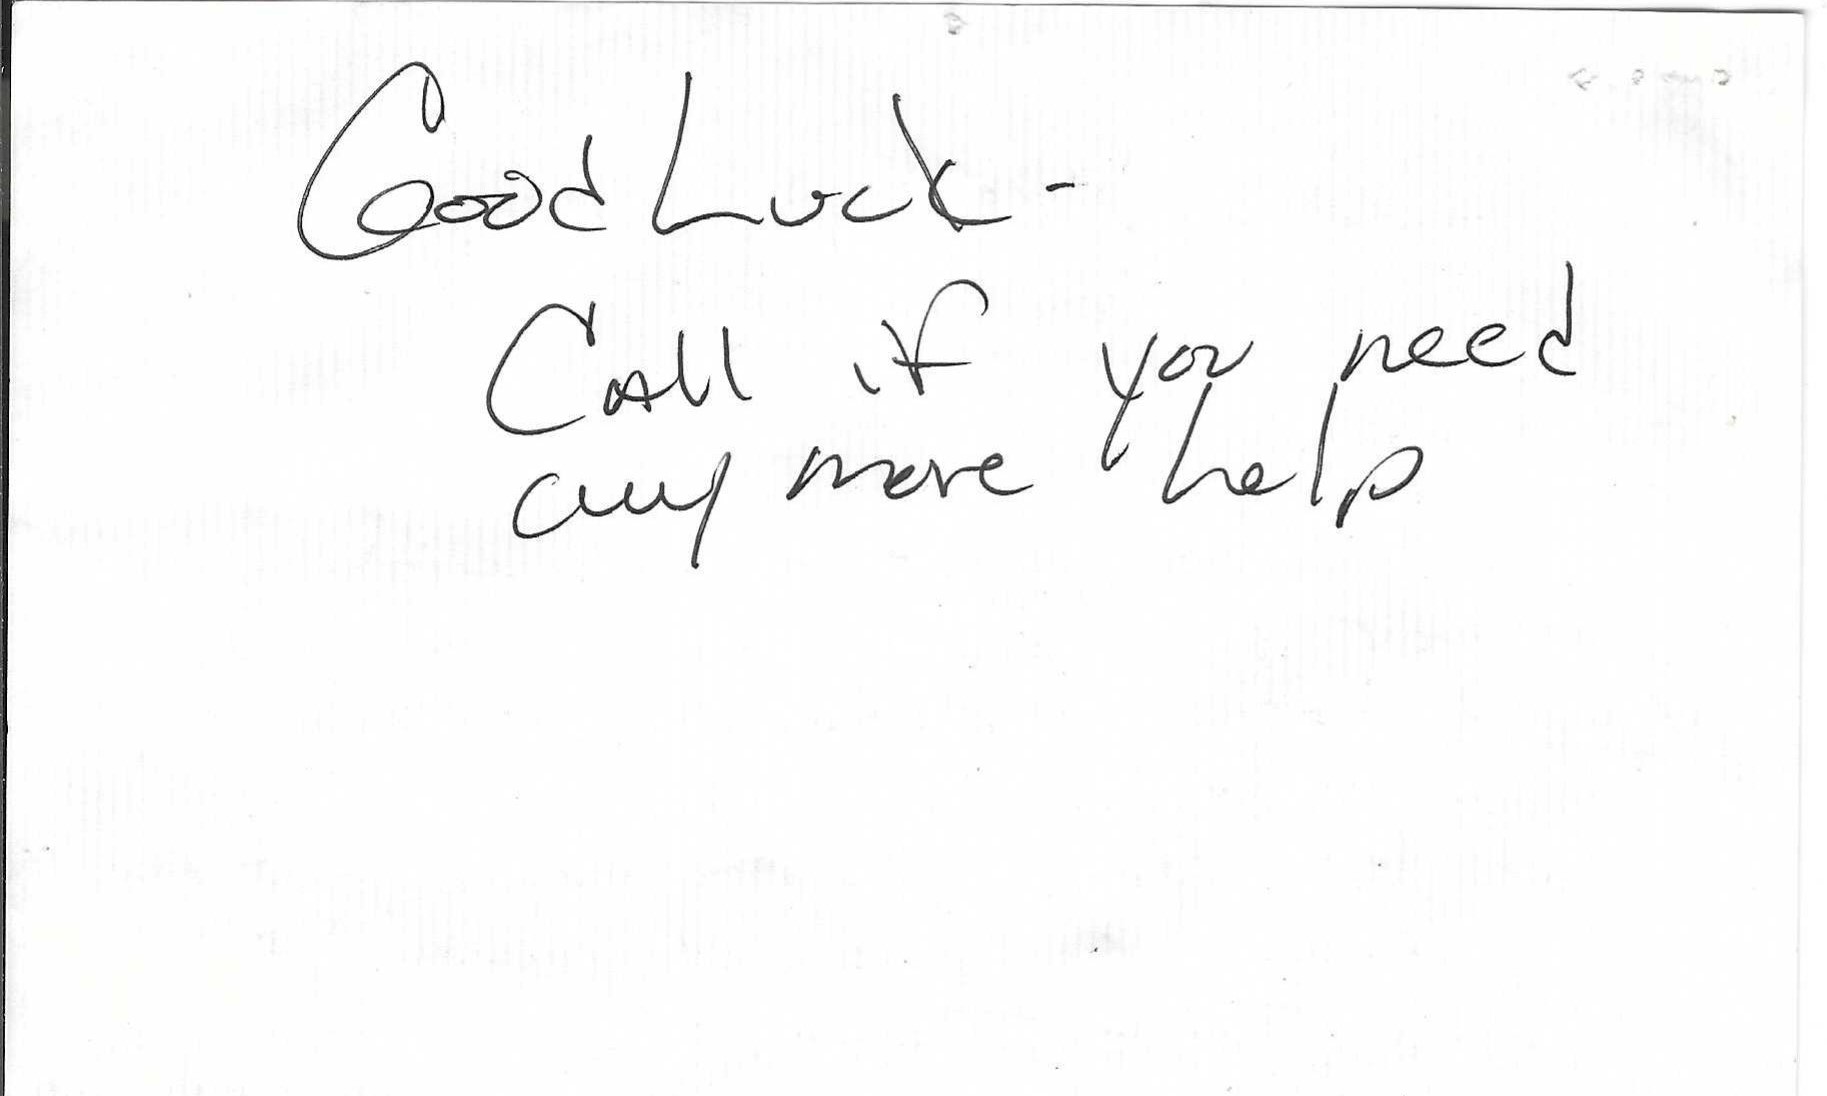 Good Luck -
Call if you need
any more help